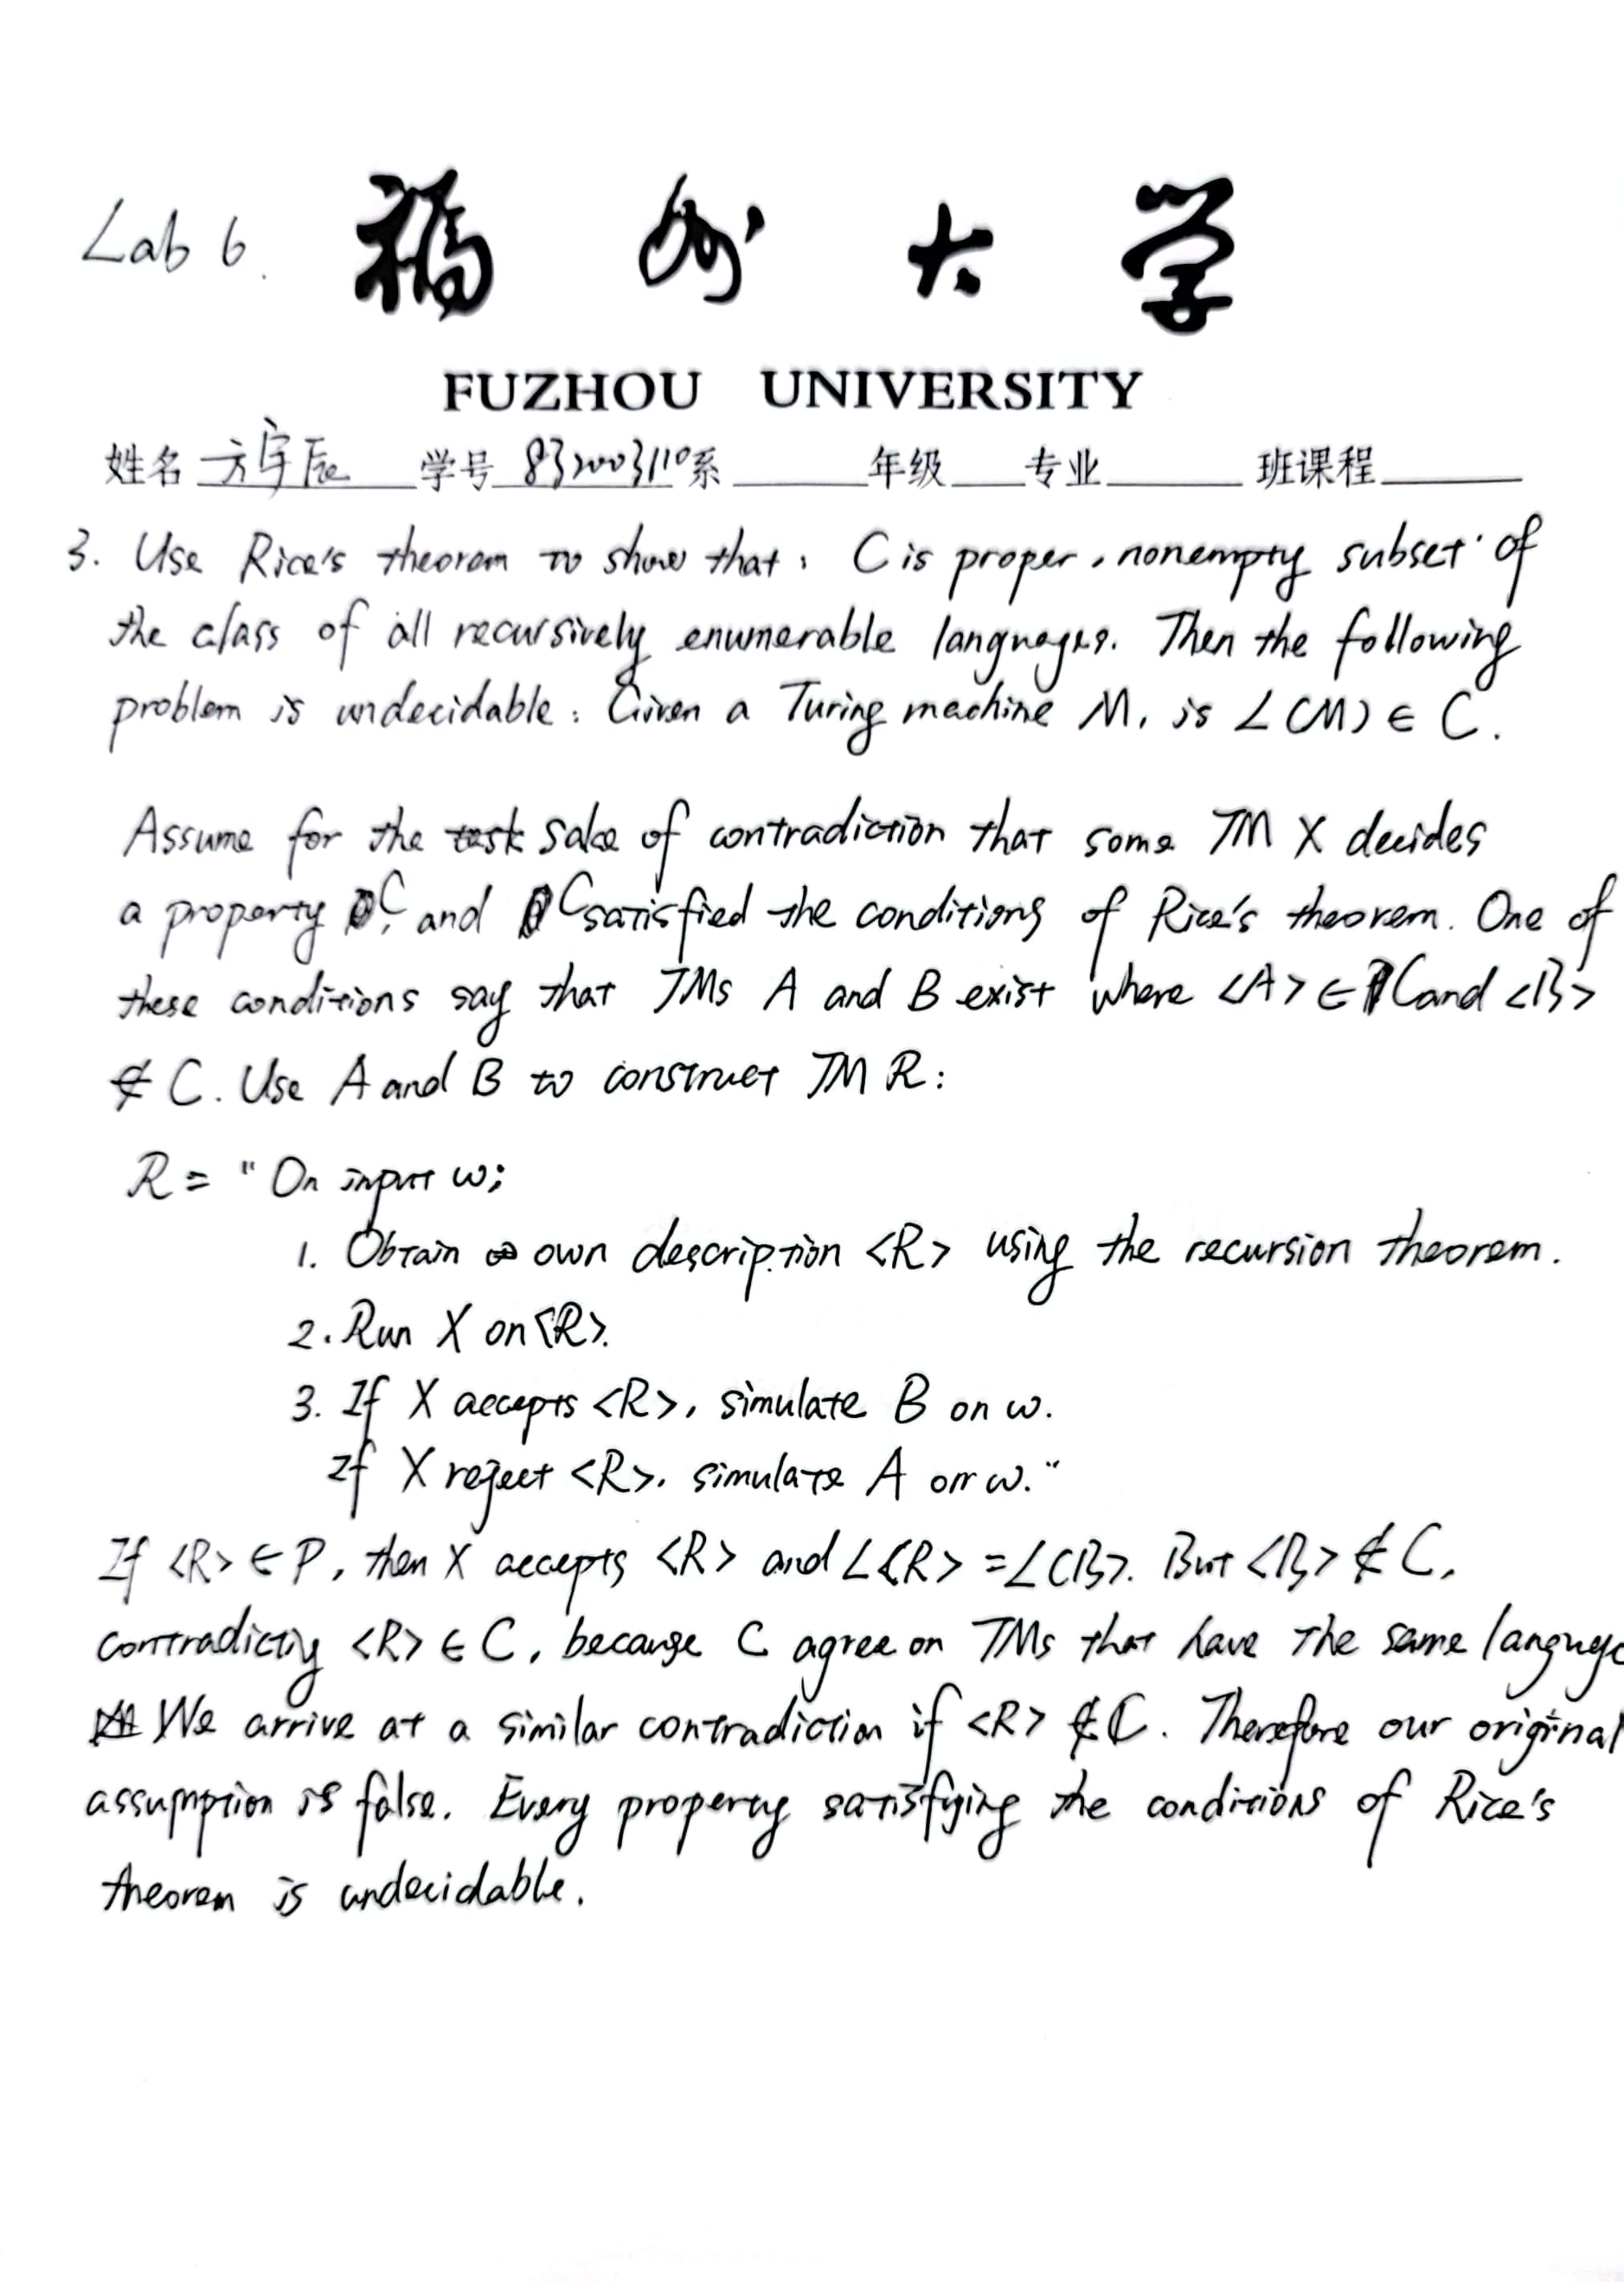 Lab 6.
福州大学
FUZHOU UNIVERSITY
姓名 方宇辰 学号 832003110 系 年级 专业 班课程
3. Use Rice's theorem to show that: C is proper, nonempty subset of
the class of all recursively enumerable languages. Then the following
problem is undecidable: Given a Turing machine M, is L(M) ∈ C.
Assume for the sake of contradiction that some TM X decides
a property C, and C satisfied the conditions of Rice's theorem. One of
these conditions say that TMs A and B exist where <A> ∈ C and <B>
∉ C. Use A and B to construct TM R:
R = "On input w:
1. Obtain own description <R> using the recursion theorem.
2. Run X on <R>.
3. If X accepts <R>, simulate B on w.
If X reject <R>, simulate A on w."
If <R> ∈ P, then X accepts <R> and L<R> = L(B>. But <B> ∉ C,
contradictig <R> ∈ C, because C agree on TMs that have the same language
We arrive at a similar contradiction if <R> ∉ C. Therefore our original
assumption is false. Every property satisfying the conditions of Rice's
theorem is undecidable.